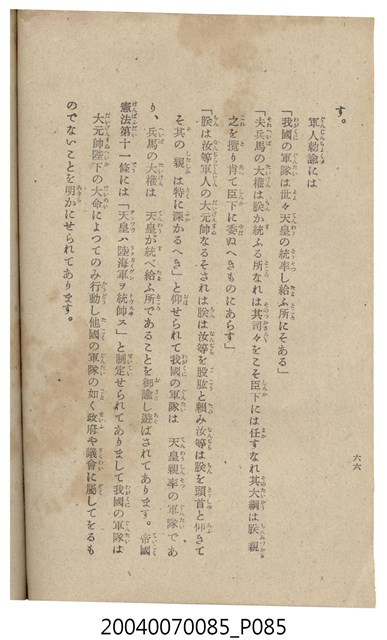 す。
軍人勅諭には
「我國の軍隊は世々天皇の統率し給ふ所にそある」
「夫兵馬の大權は朕か統ふる所なれは其司々をこそ臣下には任すなれ其大綱は朕親
之を攬り肯て臣下に委ぬへきものにあらす」
「朕は汝等軍人の大元帥なるそされは朕は汝等を股肱と頼み汝等は朕を頭首と仰きて
そ其の親は特に深かるへき」と仰せられて我國の軍隊は 天皇親率の軍隊であ
り、兵馬の大權は 天皇が統べ給ふ所であることを御諭し遊ばされてあります。帝國
憲法第十一條には「天皇ハ陸海軍ヲ統帥ス」と制定せられてありまして我國の軍隊は
大元帥陛下の大命によつてのみ行動し他國の軍隊の如く政府や議會に屬してをるも
のでないことを明かにせられてあります。
六六
20040070085_P085